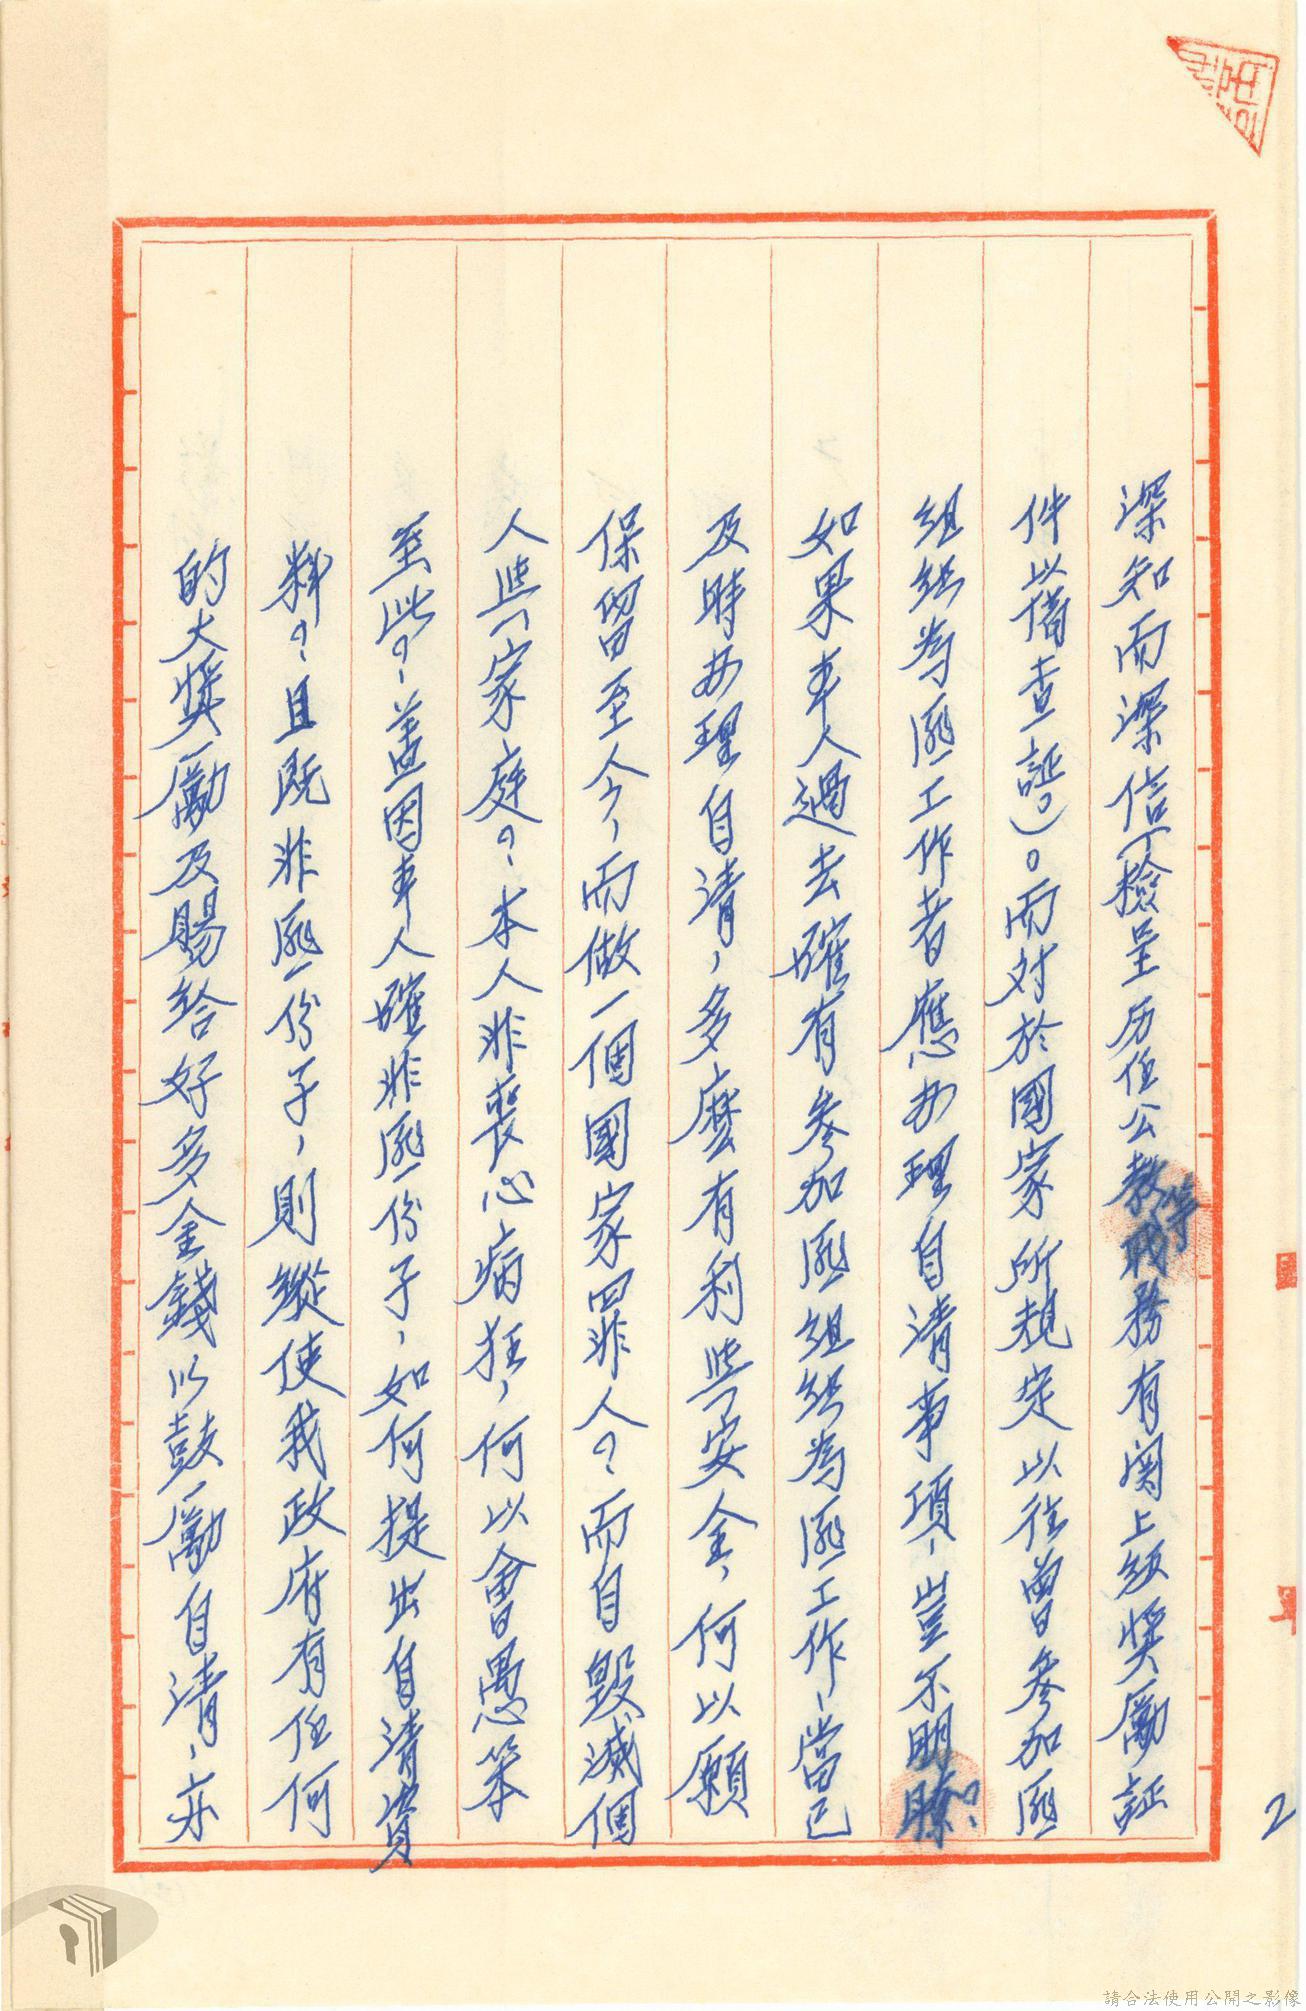 深知而深信(檢呈历任公教等职務有関上級獎勵証
件以备查証。)。而对於國家所規定以往曾参加匪
組织為匪工作者應办理自清事項,豈不明瞭?
如果本人過去確有参加匪組织為匪工作,當已
及時办理自清,多麼有利与安全,何以願
保留至今,而做一個國家罪人?而自毀滅個
人与家庭?本人非喪心病狂,何以會愚笨
至此?盖因本人確非匪份子,如何提出自清資
料?且既非匪份子,則縱使我政府有任何
的大獎勵及賜給好多金錢以鼓勵自清,亦
2
請合法使用公開之影像